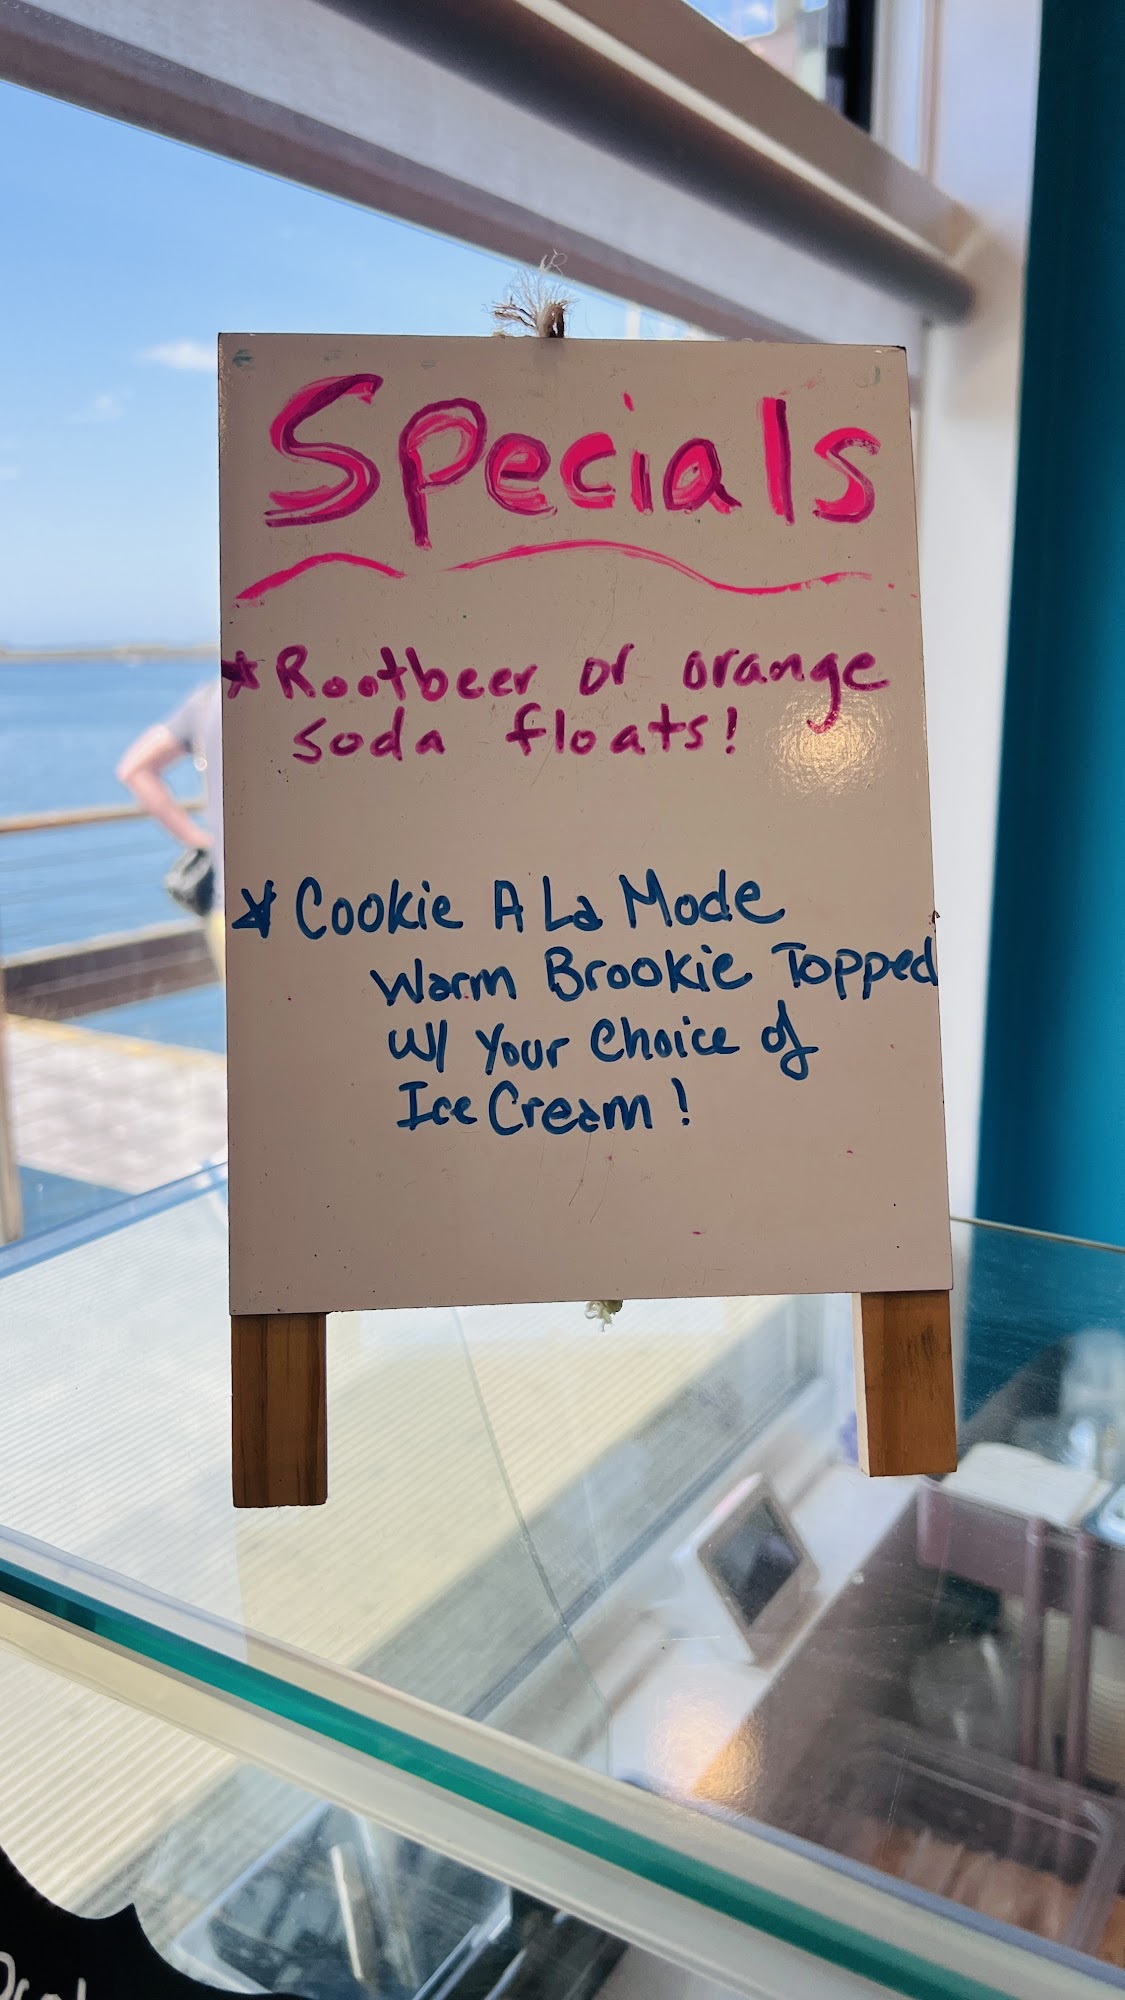 Specials
* Rootbeer or orange
soda floats!
* Cookie A La Mode
Warm Brookie Topped
W/ Your Choice of
Ice Cream!